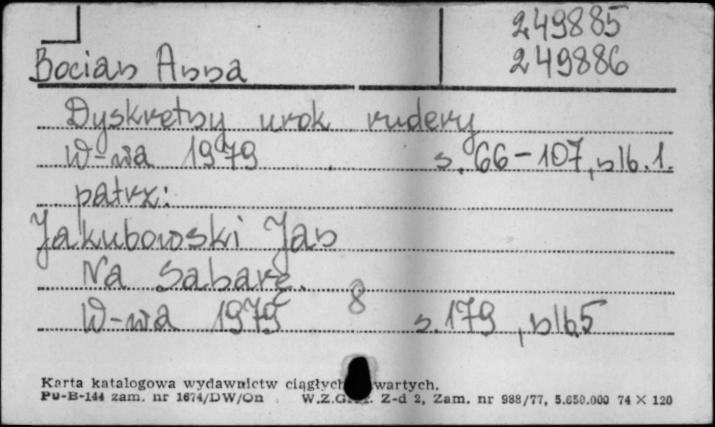 249885
Bocian Anna 249886
Dyskretny urok rudery
W-wa 1979 s. 66-107, nlb. 1.
patrz:
Jakubowski Jan
Na Saharę.
W-wa 1979 8 s. 179, nlb5
Karta katalogowa wydawnictw ciągłych wartych.
Pu-B-144 zam. nr 1674/DW/On W.Z.G. Z-d 2, Zam. nr 988/77, 5.650.000 74 × 120